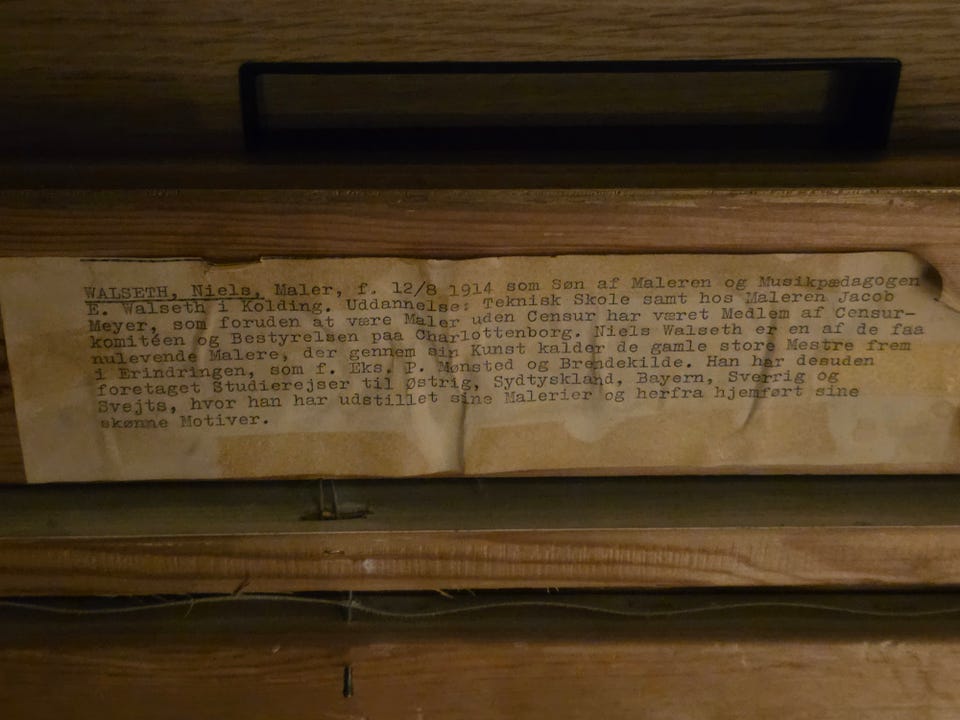 WALSETH, Niels, Maler, f. 12/8 1914 som Søn af Maleren og Musikpædagogen
E. Walseth i Kolding. Uddannelse: Teknisk Skole samt hos Maleren Jacob
Meyer, som foruden at være Maler uden Censur har været Medlem af Censur-
komitéen og Bestyrelsen paa Charlottenborg. Niels Walseth er en af de faa
nulevende Malere, der gennem sin Kunst kalder de gamle store Mestre frem
i Erindringen, som f. Eks. P. Mønsted og Brendekilde. Han har desuden
foretaget Studierejser til Østrig, Sydtyskland, Bayern, Sverrig og
Svejts, hvor han har udstillet sine Malerier og herfra hjemført sine
skønne Motiver.